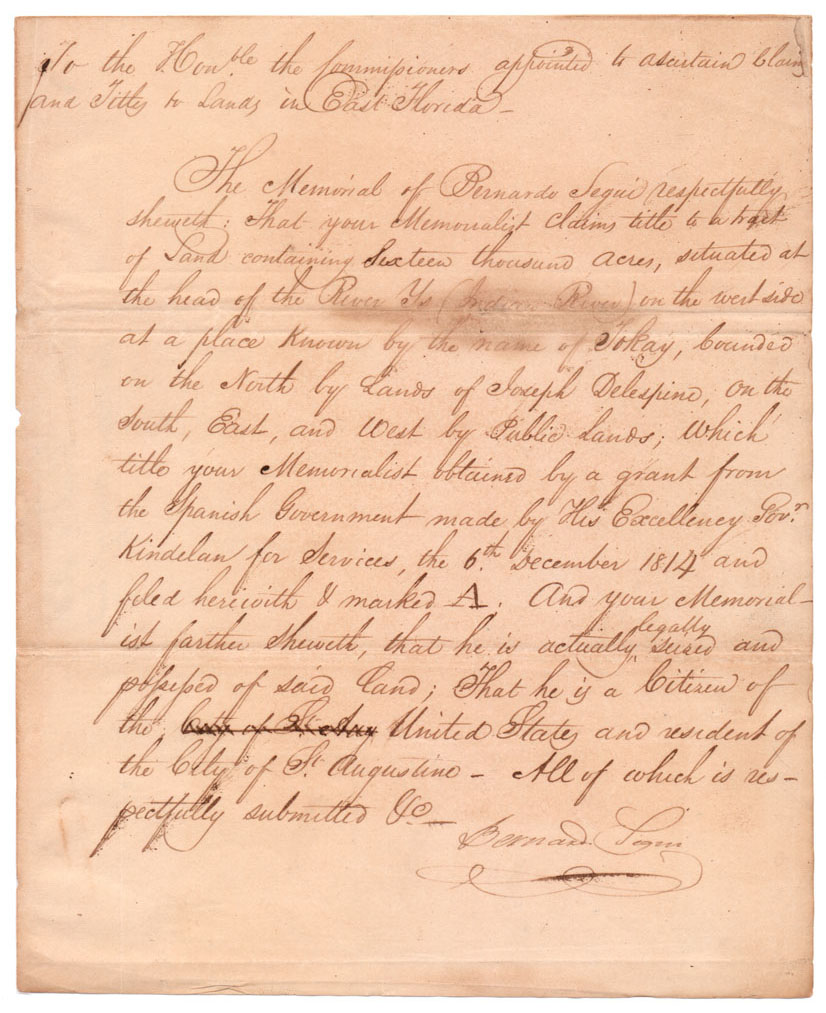 To the Honble the Commissioners appointed to ascertain Claim
and Titles to Lands in East Florida –
The Memorial of Bernardo Segui respectfully
sheweth: That your Memorialist Claims title to a tract
of Land containing Sixteen thousand Acres, situated at
the head of the River Ys (Indian River) on the west side
at a place Known by the name of Tokay, bounded
on the North by Lands of Joseph Delespine, on the
South, East, and West by Public Lands; Which
title your Memorialist obtained by a grant from
the Spanish Government made by His Excellency Govr
Kindelan for Services, the 6th December 1814 and
filed herewith & marked A. And your Memorial-
ist farther sheweth, that he is actually legally seized and
possessed of said Land; That he is a Citizen of
the City of St Aug United States and resident of
the City of St Augustine – All of which is res-
pectfully submitted &c –
Bernardo Segui